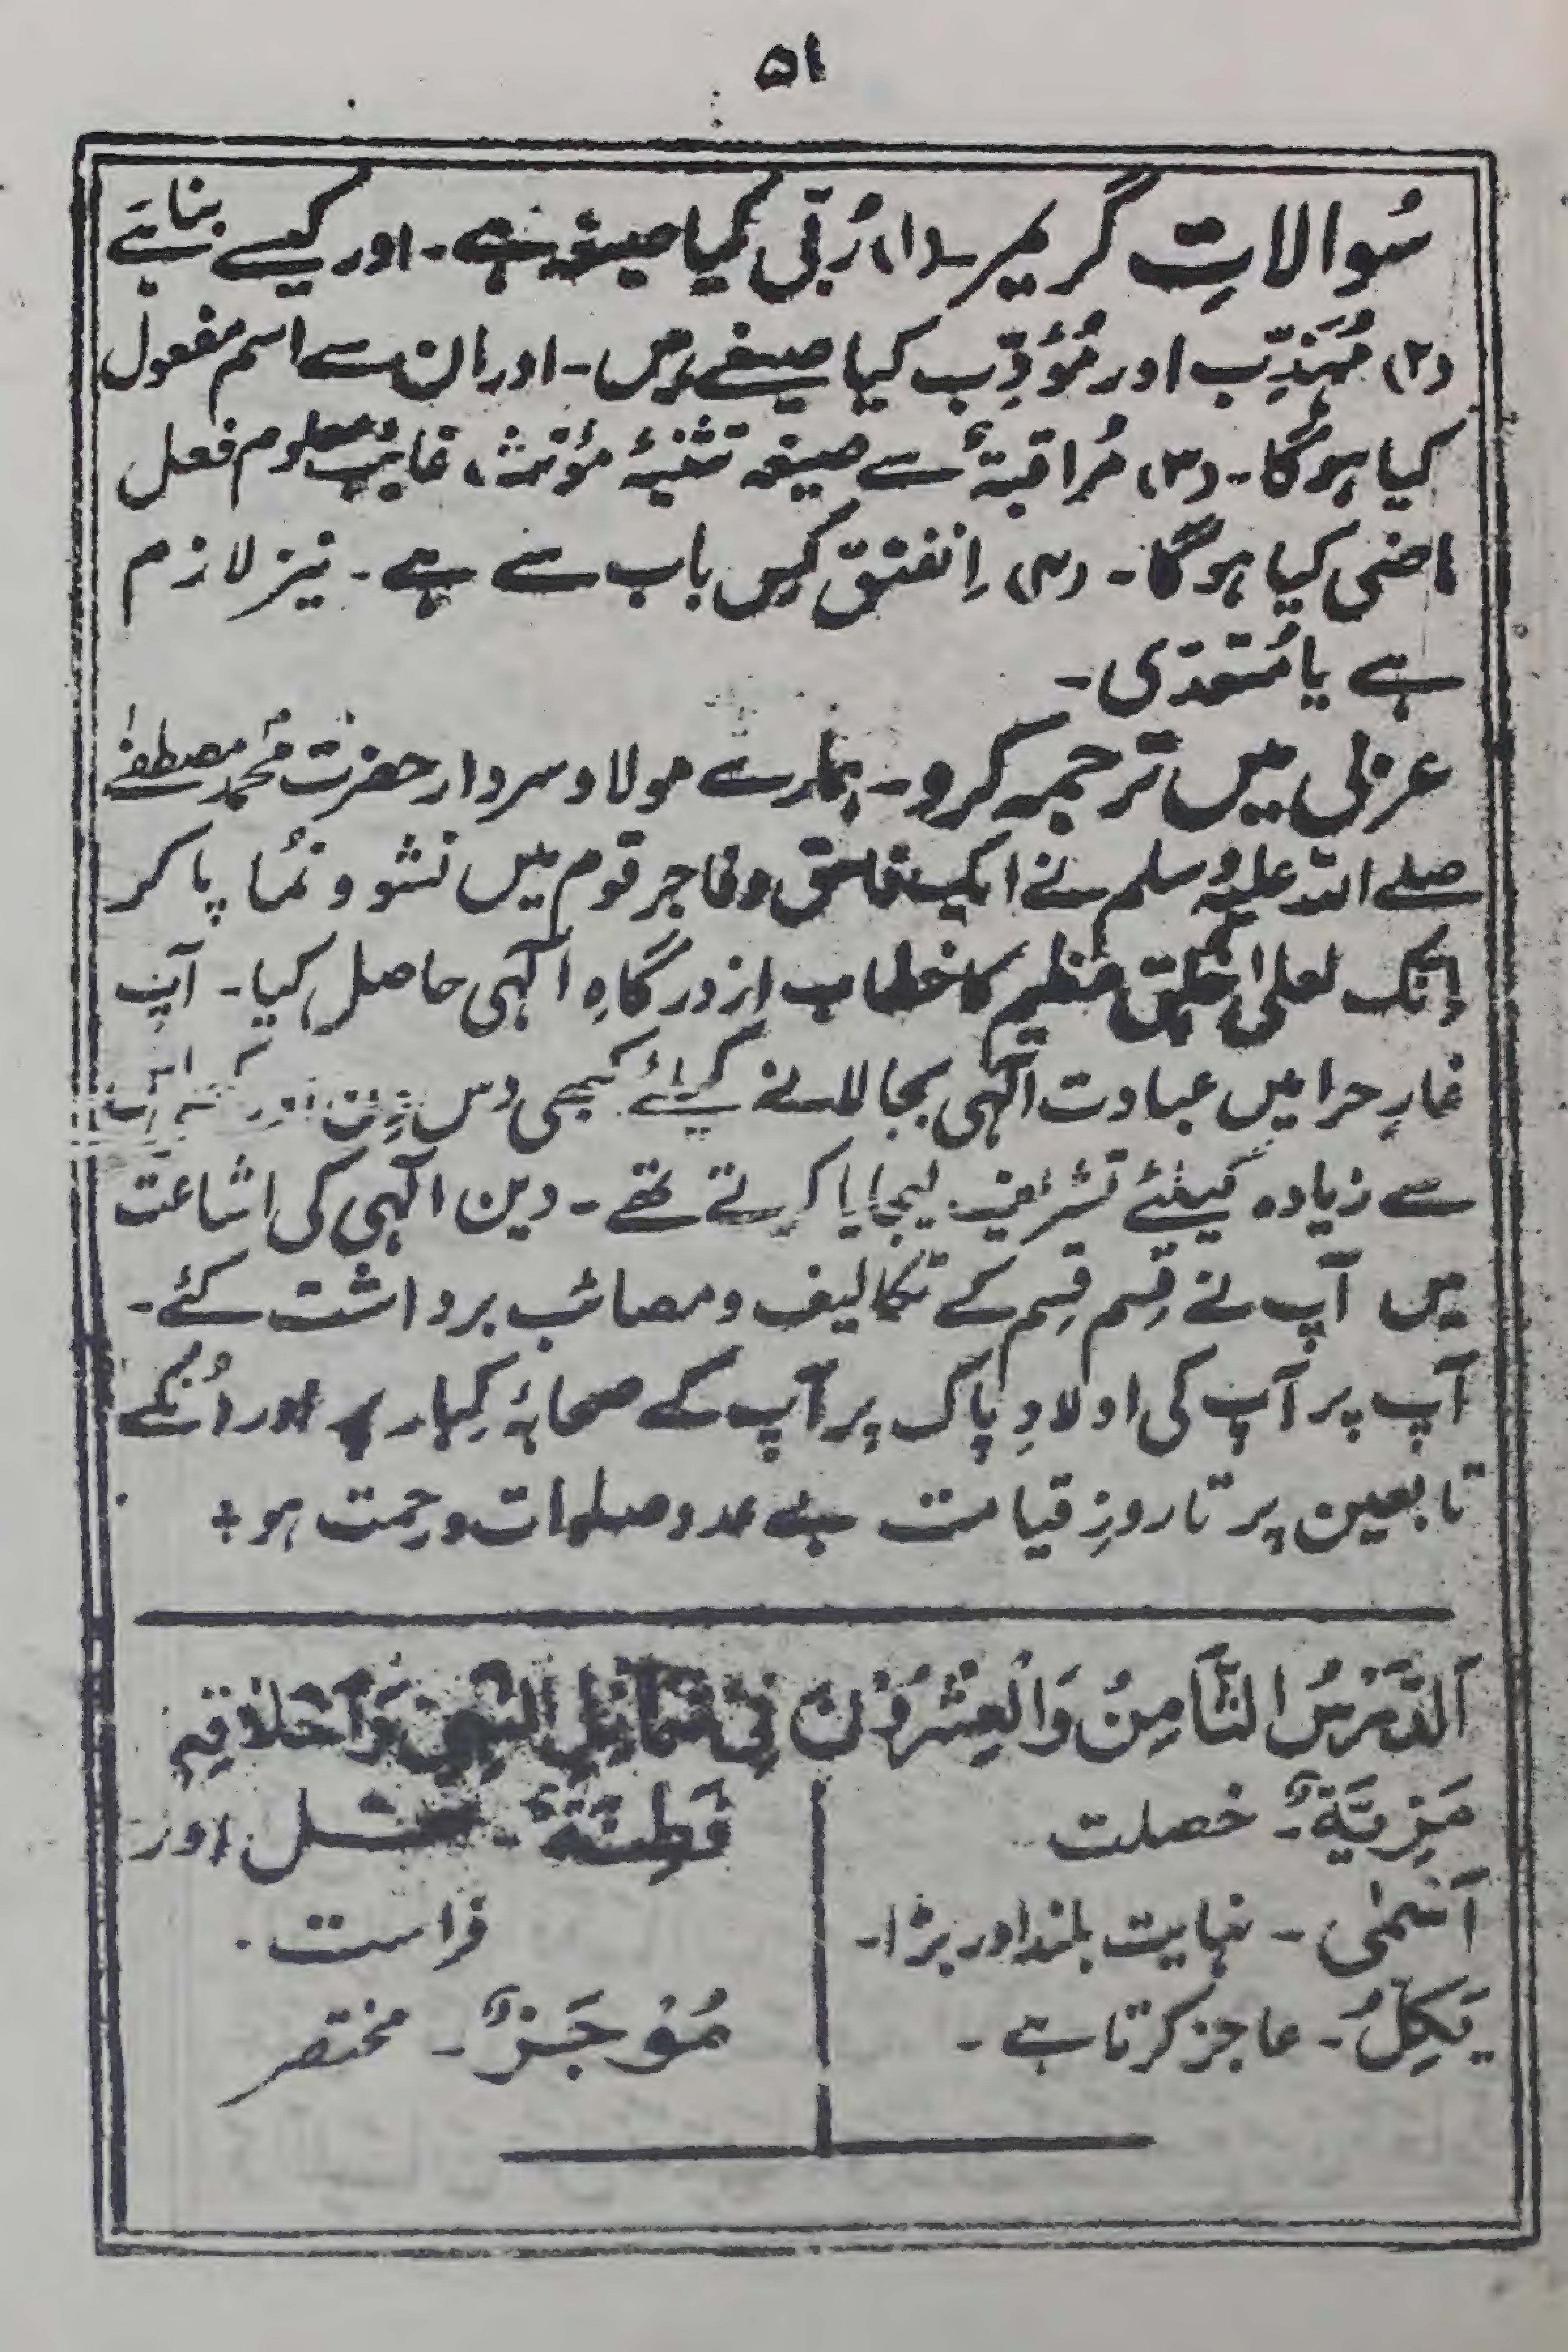 ۵۱
سُوالاتِ گریمر ۔ (۱) رُبِّی کیا صیغہ ہے ۔ اور کیسے بنا ہے
(۲) مُہَذِّب اور مُؤدِّب کیا صیغے ہیں ۔ اور ان سے اسم مفعول
کیا ہوگا ۔ (۳) مُراقبۃٌ سے صیغہ تثنیۂ مؤنث، غایب معلوم فعل
ماضی کیا ہوگا ۔ (۴) اِنفتق کِس باب سے ہے ۔ نیز لازم
ہے یا مُتعدّی ۔
عربی میں ترجمہ کرو ۔ ہمارے مولا و سردار حضرت محمّد مصطفےٰ
صلے اللہ علیہ وسلم نے ایک فاسق و فاجر قوم میں نشو و نُما پا کر
اِنّک لعلی اخلق عظیم کا خطاب از درگاہِ الٰہی حاصل کیا ۔ آپ
غارِ حرا میں عبادت الٰہی بجا لانے کیلئے کبھی دس دن اور کبھی اس
سے زیادہ کیلئے تشریف لیجایا کرتے تھے ۔ دین الٰہی کی اشاعت
میں آپ نے قِسم قِسم کے تکالیف و مصائب برداشت کئے ۔
آپ پر آپ کی اولادِ پاک پر آپ کے صحابۂ کِبار پر اور اُنکے
تابعین پر تا روزِ قیامت بے عدد صلوات و رحمت ہو ؞
اَلدَّرْسُ الثَّامِنُ وَالْعِشْرُوْنَ فِیْ شَمَائِلِ النَّبِیِّ وَاَخْلَاقِہٖ
مَزِیَّۃٌ ۔ خصلت
اَسْمٰی ۔ نہایت بلند اور بڑا ۔
یَکِلُّ ۔ عاجز کرتا ہے ۔
فَطِنَۃٌ ۔ اور
فراست ۔
مُوْجَزٌ ۔ مختصر